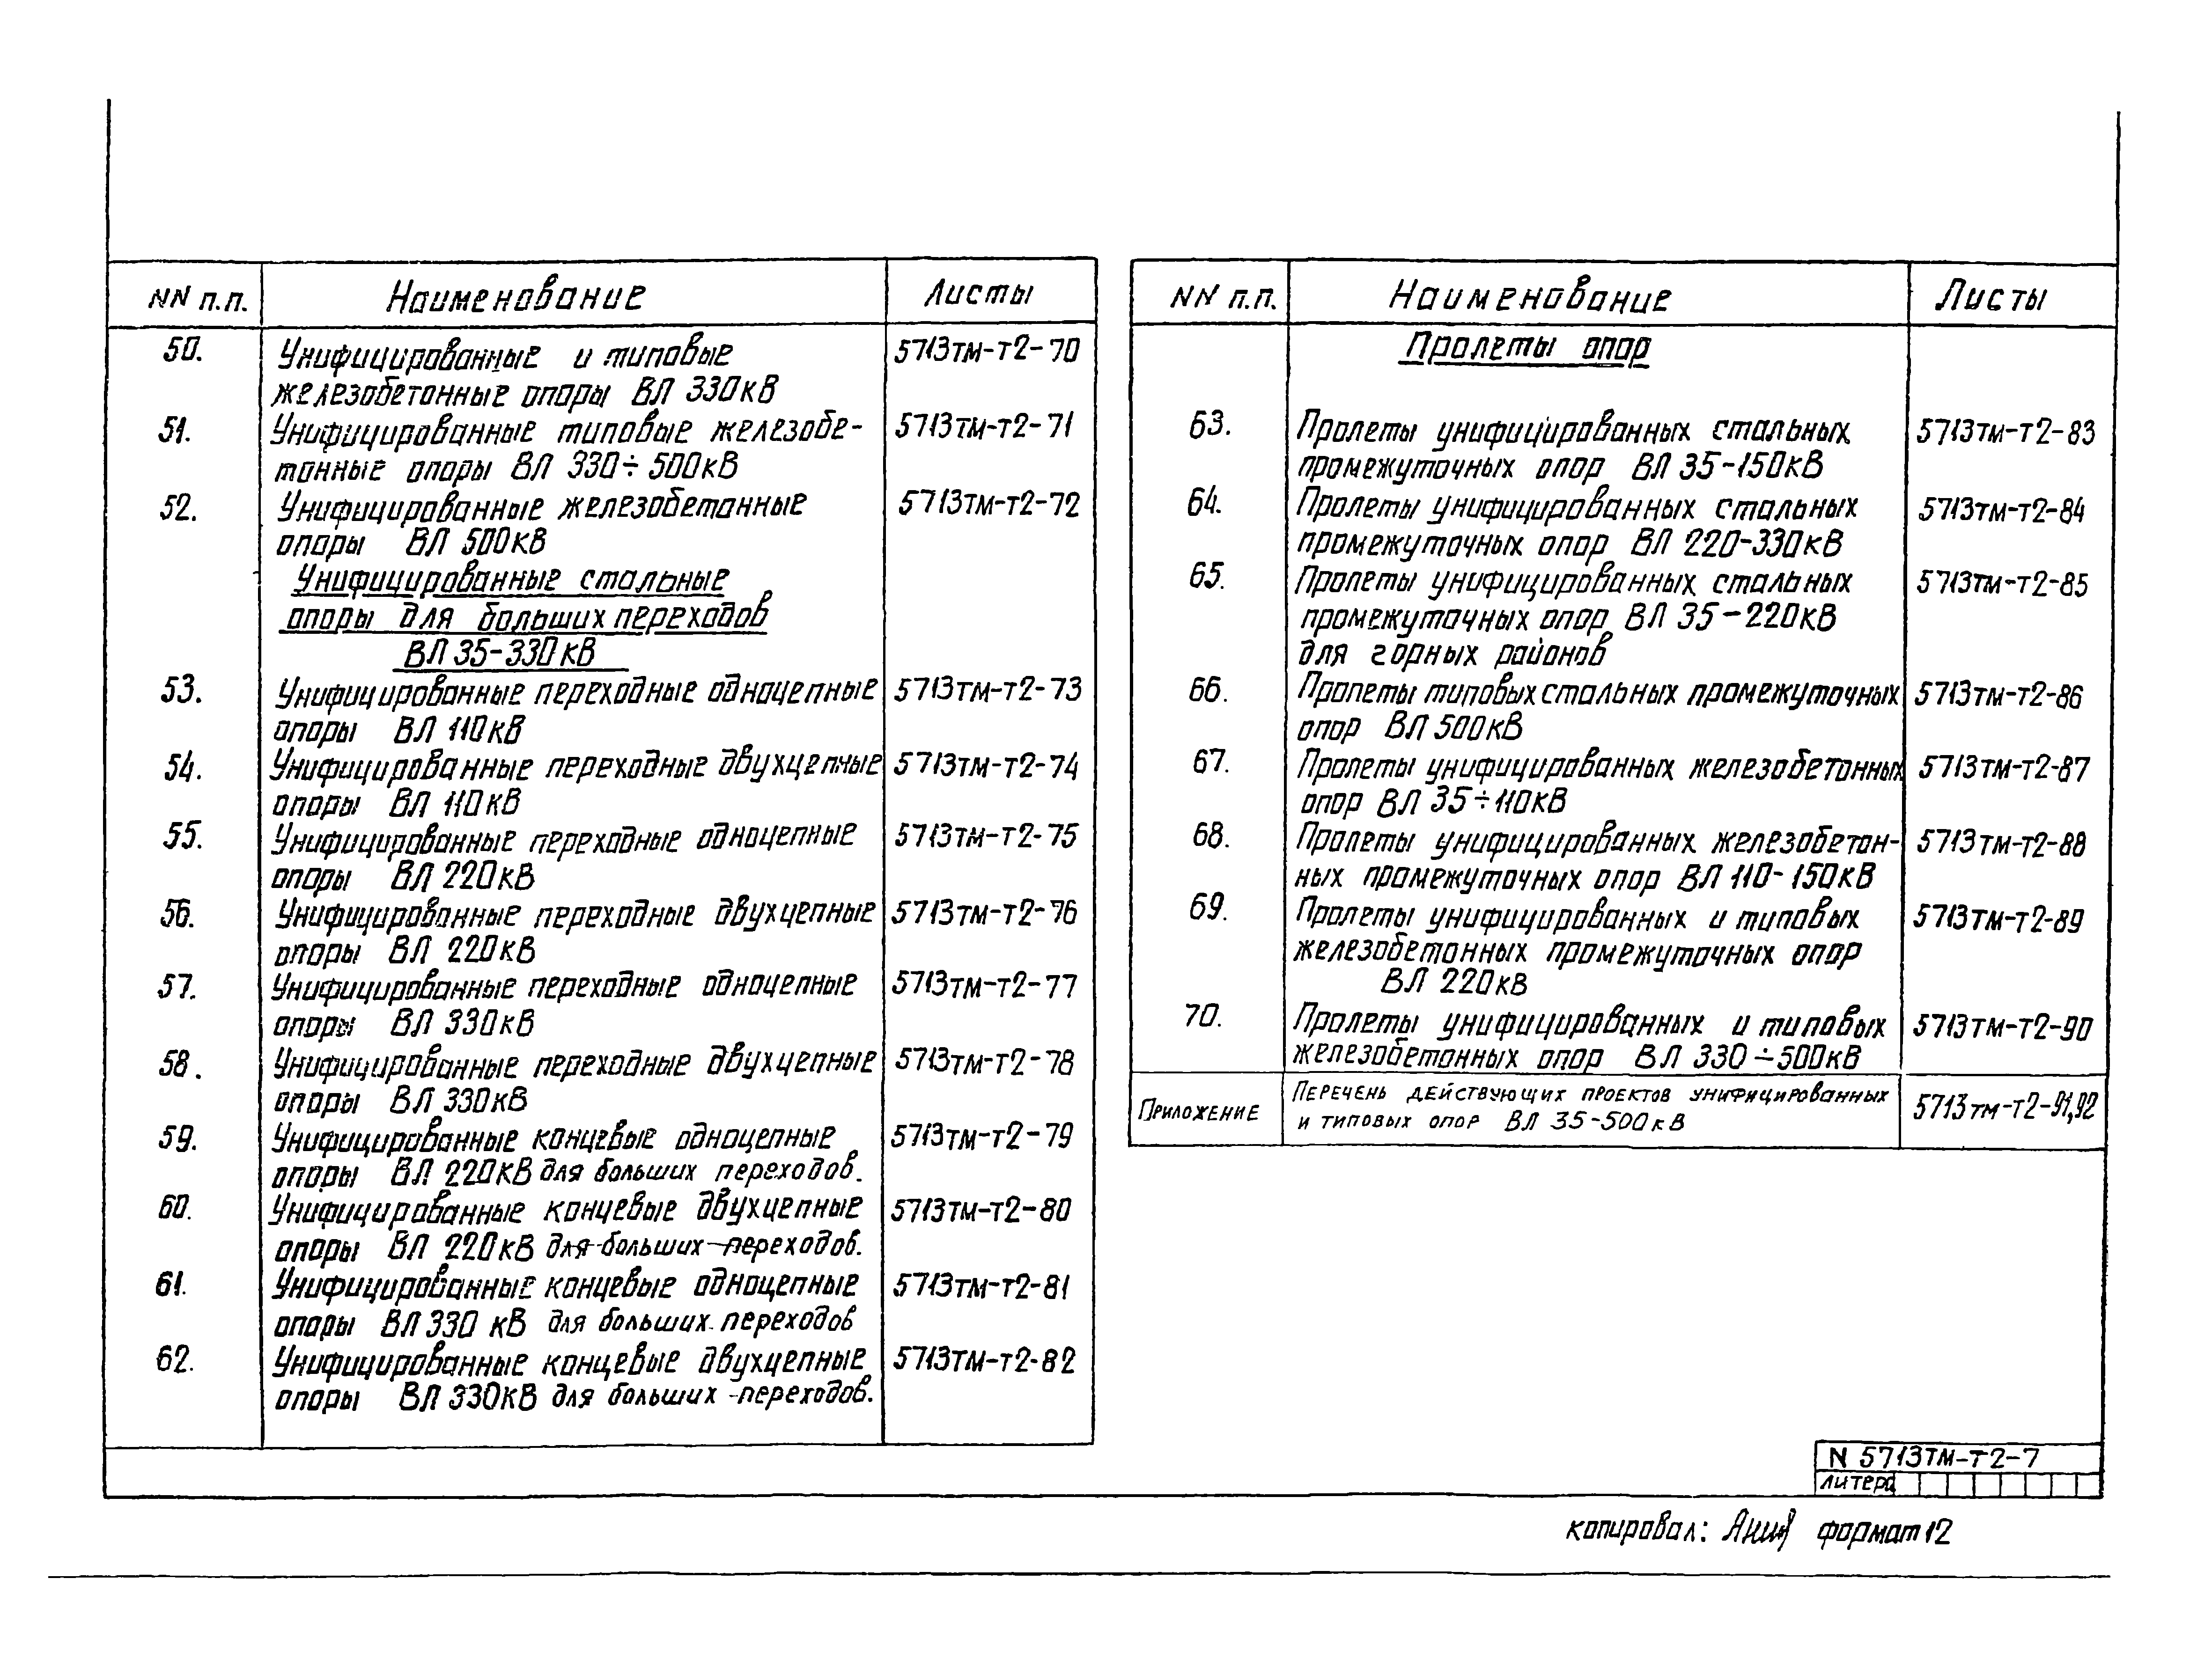 NN п.п. Наименование Листы
50. Унифицированные и типовые 5713тм-т2-70
железобетонные опоры ВЛ 330кВ
51. Унифицированные типовые железобе- 5713тм-т2-71
тонные опоры ВЛ 330÷500кВ
52. Унифицированные железобетонные 5713тм-т2-72
опоры ВЛ 500кВ
Унифицированные стальные
опоры для больших переходов
ВЛ 35-330кВ
53. Унифицированные переходные одноцепные 5713тм-т2-73
опоры ВЛ 110кВ
54. Унифицированные переходные двухцепные 5713тм-т2-74
опоры ВЛ 110кВ
55. Унифицированные переходные одноцепные 5713тм-т2-75
опоры ВЛ 220кВ
56. Унифицированные переходные двухцепные 5713тм-т2-76
опоры ВЛ 220кВ
57. Унифицированные переходные одноцепные 5713тм-т2-77
опоры ВЛ 330кВ
58. Унифицированные переходные двухцепные 5713тм-т2-78
опоры ВЛ 330кВ
59. Унифицированные концевые одноцепные 5713тм-т2-79
опоры ВЛ 220кВ для больших переходов.
60. Унифицированные концевые двухцепные 5713тм-т2-80
опоры ВЛ 220кВ для больших переходов.
61. Унифицированные концевые одноцепные 5713тм-т2-81
опоры ВЛ 330 кВ для больших переходов
62. Унифицированные концевые двухцепные 5713тм-т2-82
опоры ВЛ 330кВ для больших переходов.
NN п.п. Наименование Листы
Пролеты опор
63. Пролеты унифицированных стальных 5713тм-т2-83
промежуточных опор ВЛ 35-150кВ
64. Пролеты унифицированных стальных 5713тм-т2-84
промежуточных опор ВЛ 220-330кВ
65. Пролеты унифицированных стальных 5713тм-т2-85
промежуточных опор ВЛ 35-220кВ
для горных районов
66. Пролеты типовых стальных промежуточных 5713тм-т2-86
опор ВЛ 500кВ
67. Пролеты унифицированных железобетонных 5713тм-т2-87
опор ВЛ 35÷110кВ
68. Пролеты унифицированных железобетон- 5713тм-т2-88
ных промежуточных опор ВЛ 110-150кВ
69. Пролеты унифицированных и типовых 5713тм-т2-89
железобетонных промежуточных опор
ВЛ 220кВ
70. Пролеты унифицированных и типовых 5713тм-т2-90
железобетонных опор ВЛ 330÷500кВ
Приложение Перечень действующих проектов унифицированных 5713тм-т2-91,92
и типовых опор ВЛ 35-500кВ
N 5713тм-т2-7
литера
копировал: формат 12